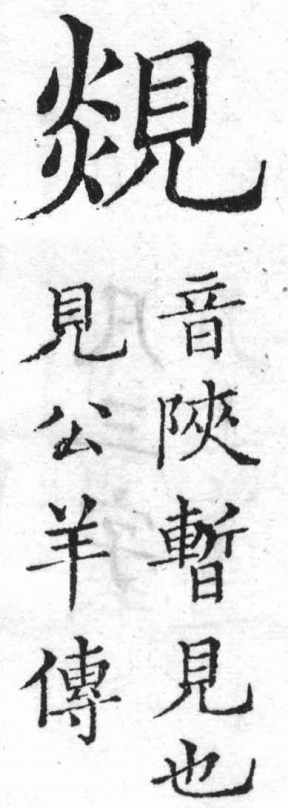 覢
音陝暫見也
見公羊傳